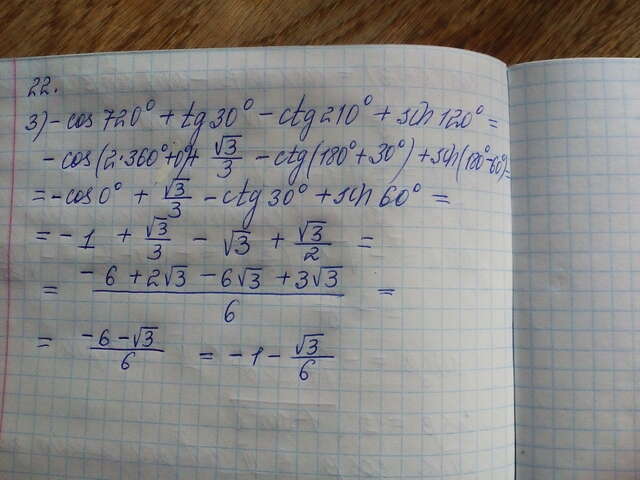 22.
3) - cos 720° + tg 30° - ctg 210° + sin 120° =
- cos(2·360°+0°)+ √3/3 - ctg(180°+30°) + sin(180°-60°)=
= -cos 0° + √3/3 - ctg 30° + sin 60° =
= - 1 + √3/3 - √3 + √3/2 =
= (- 6 + 2√3 - 6√3 + 3√3)/6 =
= (-6 - √3)/6 = - 1 - √3/6